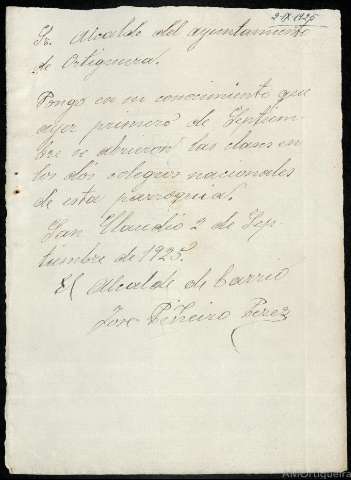 2-IX-1925
Sr. Alcalde del ayuntamiento
de Ortigueira.
Pongo en su conocimiento que
ayer primero de Septiem-
bre se abrieron las clases en
los dos colegios nacionales
de esta parroquia.
San Claudio 2 de Sep-
tiembre de 1925.
El Alcalde de barrio
José Piñeiro Perez
AMOrtigueira